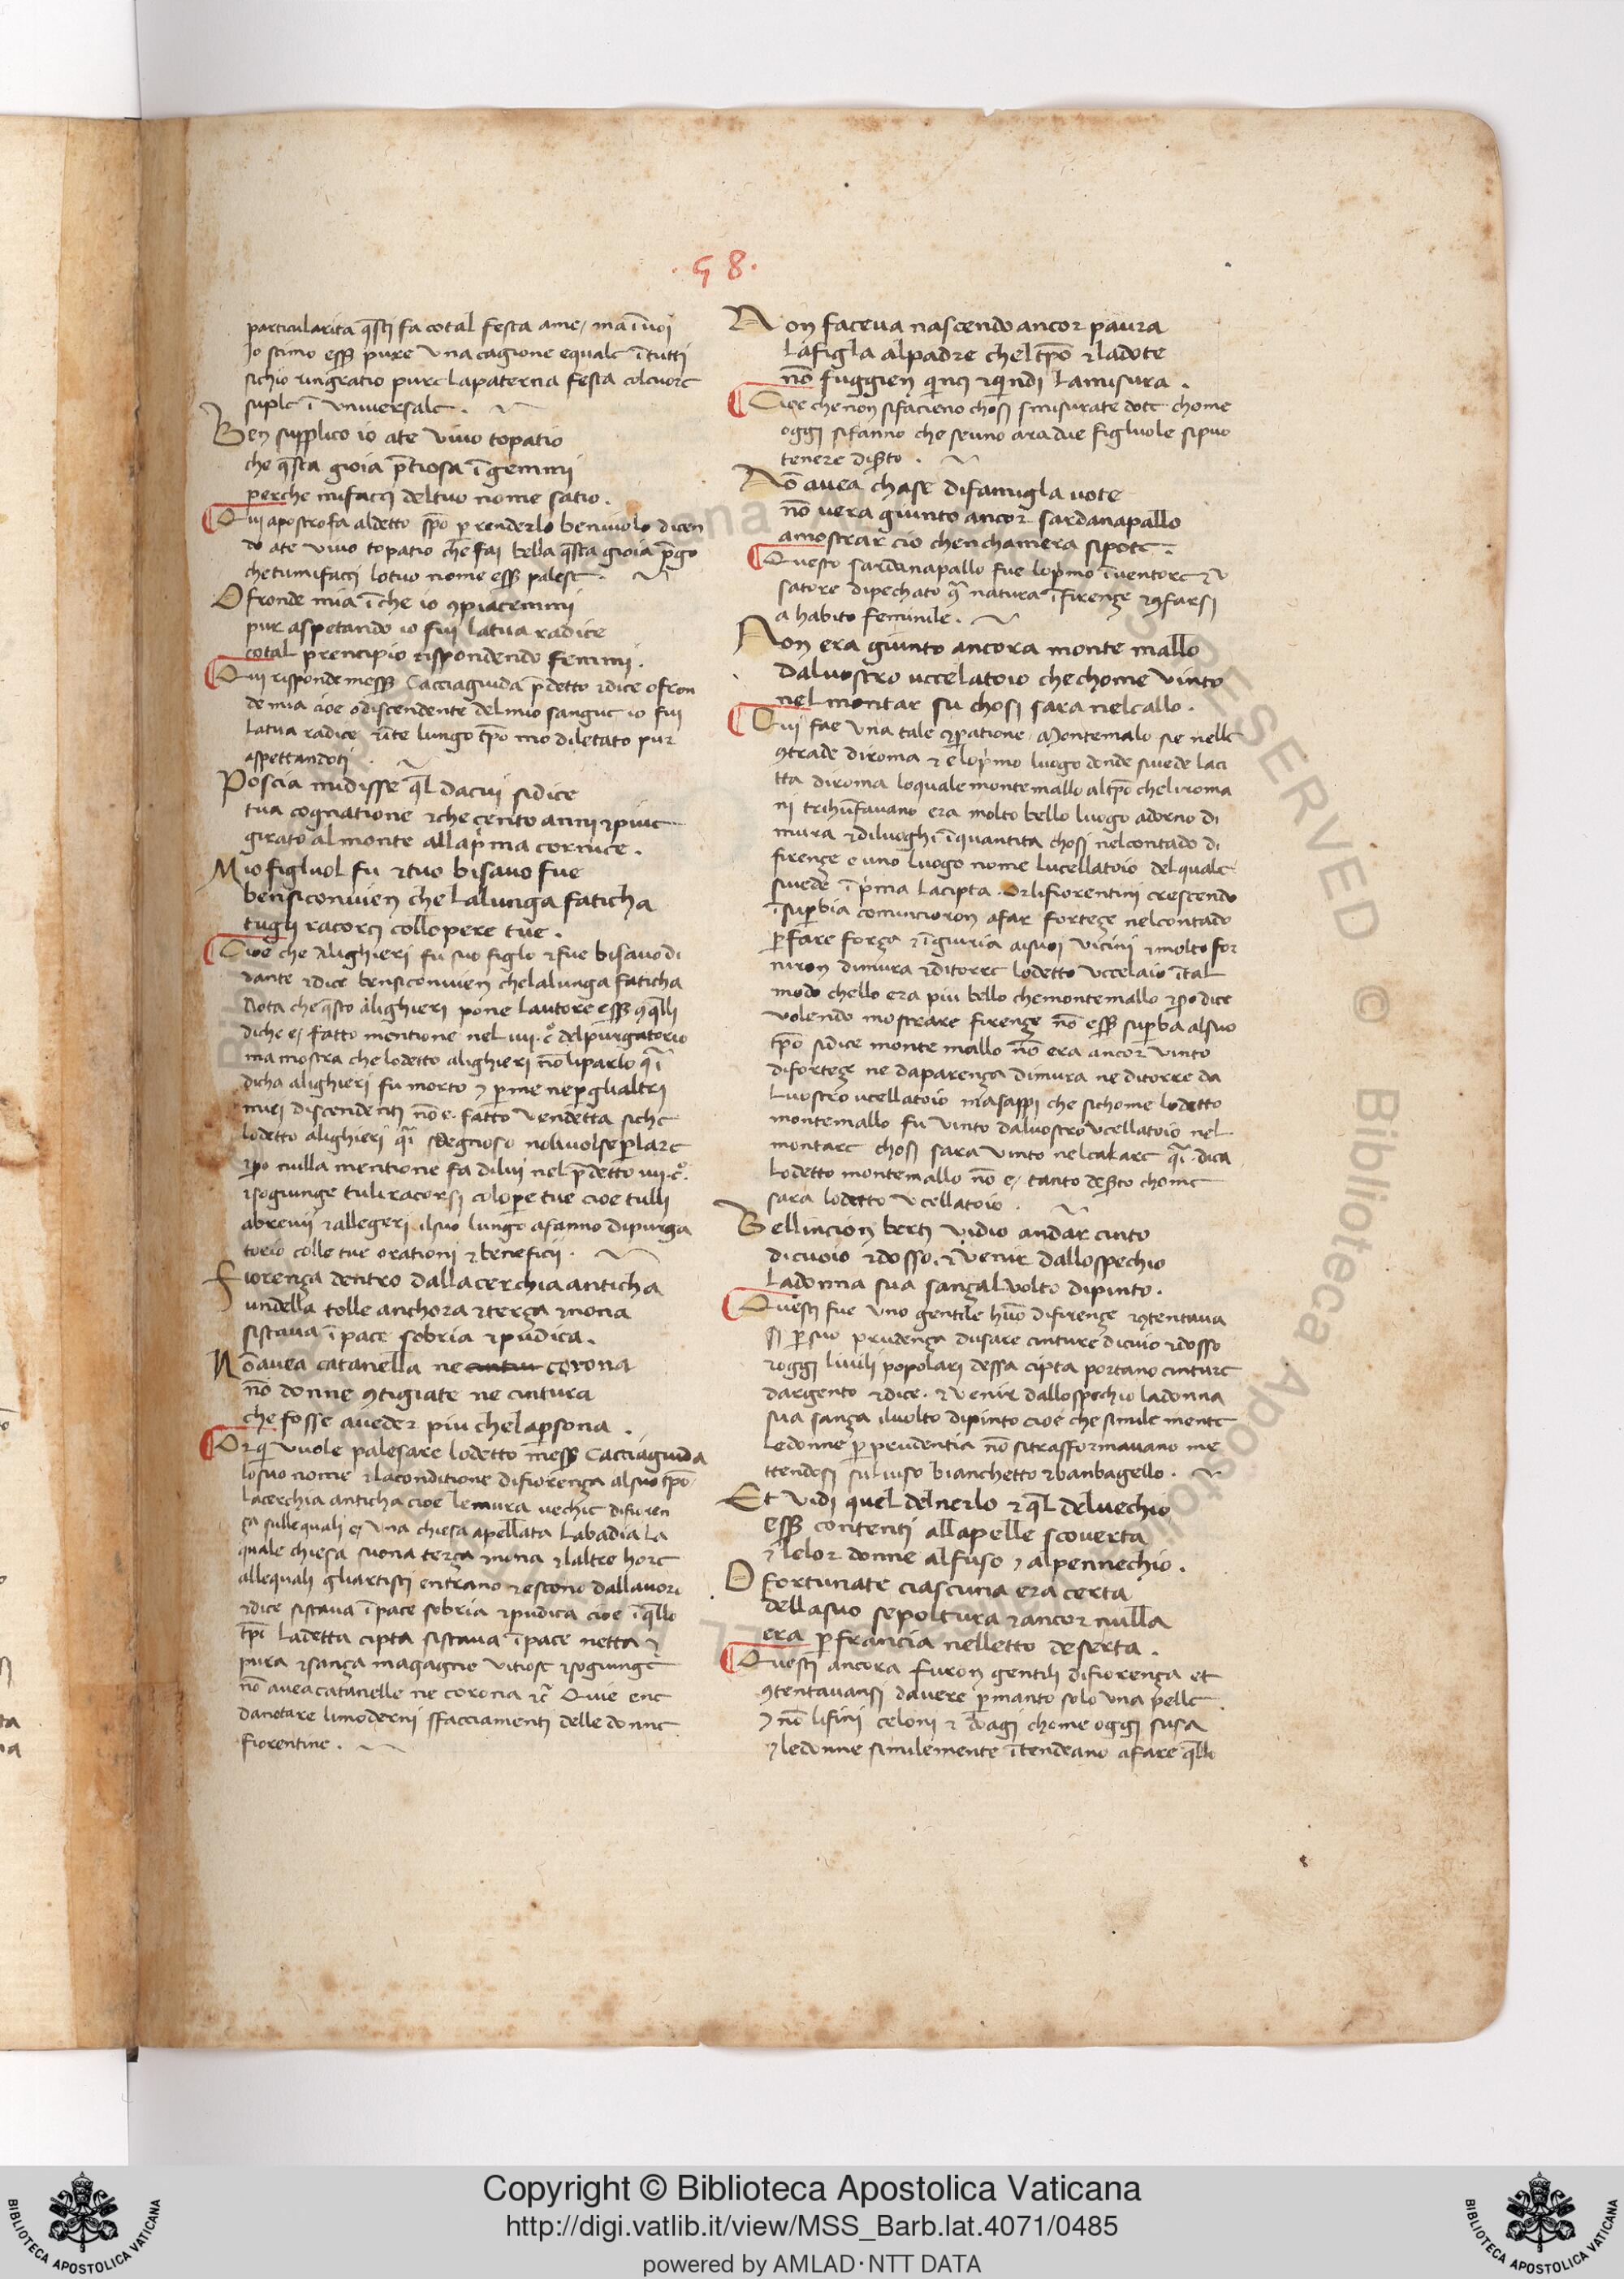 .58.
particularita q̄sti fa cotal festa ame, ma ī uoi
Io stimo ess̄ pure una cagione equale ī tutti
sichio ringratio pure la paterna festa col cuore
suplc̄ ī universale.
Ben supplico io ate vivo topatio
che q̄sta gioia p̄tiosa ī gemmi
perche mifacci deltuo nome satio.
Qui apostrofa aldetto sp̄o p renderlo benivolo dicen
do ate vivo topatio che fai bella q̄sta gioia p̄go
chetumifacci lotuo nome ess̄ palese.
O fronde mia ī che io ꝯpiacemmi
pur aspetando io fui latua radice
cotal prencipio rispondendo femmi.
Qui risponde mess̄ Cacciaguida p̄detto ⁊dice o fron
de mia cioe o discendente delmio sangue io fui
latua radice ⁊īte lungo tp̄o mo diletato pur
aspettandoti.
Poscia midisse q̄l dacui sidice
tua cognatione ⁊che cento anni ⁊piue
girato al monte alla pͥma cornice.
Mio figluol fu ⁊tuo bisavo fue
bensiconvien che lalunga faticha
tugli racorci collopere tue.
Cioe che Alighieri fu suo figlo ⁊fue bisavo di
dante ⁊dice bensiconvien chelalunga faticha
Nota che q̄sto alighieri pone lautore ess̄ ꝯ q̄lli
diche e, fatto mentione nel iiii. cͦ delpurgatorio
ma mostra che lodetto alighieri nō liparlo q̄ī
dicha alighieri fu morto ⁊ p me ne p glialtri
miei discendenti nō e. fatto vendetta siche
lodetto alighieri q̄ī sdegnoso nolivolse parlare
⁊po nulla mentione fa dilui nel p̄detto iiii. cͦ.
⁊sogiunge tuli racorsi colope tue cioe tulli
abrevii ⁊allegeri ilsuo lungo afanno dipurga
torio colle tue orationi ⁊beneficii.
Fiorença dentro dallacerchia anticha
undella tolle anchora ⁊terça ⁊nona
sistava ī pace sobria ⁊pudica.
Nō avea catanella ne corona
nō donne ꝯtigiate ne cintura
che fosse aveder piu chelapsona.
Or qui vuole palesare lodetto mess̄ Cacciaguida
losuo nome ⁊laconditione difiorença alsuo tp̄o
Lacerchia anticha cioe lemura vechie difioren
ça sullequali e, una chiesa apellata Labadia la
quale chiesa suona terça ⁊nona ⁊laltre hore
allequali gliartisti entrano ⁊escono dallavoro
⁊dice sistava ī pace sobria ⁊pudica cioe ī q̄llo
tp̄i Ladetta cipta sistava ī pace netta ⁊
pura ⁊sança magagne vitiose ⁊sogiunge
nō avea catanelle ne corona ⁊c̄ Quie ene
danotare limoderni sfacciamenti delle donne
fiorentine.
Non faceva nascendo ancor paura
Lafigla alpadre chel tp̄o ⁊ladote
nō fuggien quinci ⁊quindi lamisura.
Cioe chenon sifacieno chosi smisurate dote chome
oggi sifanno che seuno ara due figluole sipuo
tenere disfto.
Nō avea chase difamigla vote
nō vera giunto ancor sardanapallo
amostrar cio chenchamera sipote.
Questo sardanapallo fue lopͥmo ī ventore ⁊
satore dipechato ꝯ̄ natura ī firençe ⁊ꝯfarsi
a habito feminile.
Non era giunto ancora monte mallo
Dalvostro uccelatoio chechome vinto
nel montar su chosi sara nelcallo.
Qui fae una tale ꝯparatione Montemalo sie nelle
ꝯtrade diroma ⁊ e lopͥmo luogo donde sivede laci
tta diroma loquale montemallo altp̄o cheliroma
ni trihūfavano era molto bello luogo adorno di
mura ⁊diluoghi ī quantita chosi nelcontado di
firençe e uno luogo nome lucellatoio delquale
sivede ī pͥma lacipta. Orlifiorentini crescendo
ī supbia comincioron afar forteçe nelcontado
p fare força ⁊ ī giuria aisuoi vicini ⁊molto for
niron dimura ⁊ditorre lodetto uccelaio ī tal
modo chello era piu bello chemontemallo ⁊po dice
volendo mostrare firençe nō ess̄ supba alsuo
tp̄o sidice monte mallo nō era ancor vinto
diforteçe ne daparença dimura ne ditorre da
Lvostro ucellatoio masappi che sichome lodetto
montemallo fu vinto dalvostro ucellatoio nel
montare chosi sara vinto nelcalare q̄ī dica
Lodetto montemallo nō e, tanto disfto chome
sara lodetto ucellatoio.
Bellincion berti vidio andar cinto
dicuoio ⁊dosso. ⁊ venir dallospechio
Ladonna sua sançal volto dipinto.
Questi fue uno gentile huō difirençe ⁊ꝯtentava
si p suo prudença dusare cinture dicuio ⁊dosso
⁊oggi livili popolari dessa cipta portano cinture
dargento ⁊dice. ⁊ venir dallospechio ladonna
sua sança ilvolto dipinto cioe che simile mente
Ledonne p prudentia nō sitrasformavano me
ttendosi sulviso bianchetto ⁊banbagello.
Et vidi quel delnerlo ⁊ q̄l delvechio
ess̄ contenti alla pelle scoverta
⁊ lelor donne alfuso ⁊ alpennechio.
O fortunate ciascuna era certa
dellasuo sepoltura ⁊ancor nulla
era p francia nelletto deserta.
Questi ancora furon gentili difiorença et
ꝯtentavansi davere p manto solo una pelle
⁊ nō lifini celoni ⁊ doagi chome oggi susa
⁊ledonne similemente ī tendeano afare q̄llo
Copyright © Biblioteca Apostolica Vaticana
http://digi.vatlib.it/view/MSS_Barb.lat.4071/0485
powered by AMLAD·NTT DATA
BIBLIOTECA APOSTOLICA VATICANA
BIBLIOTECA APOSTOLICA VATICANA